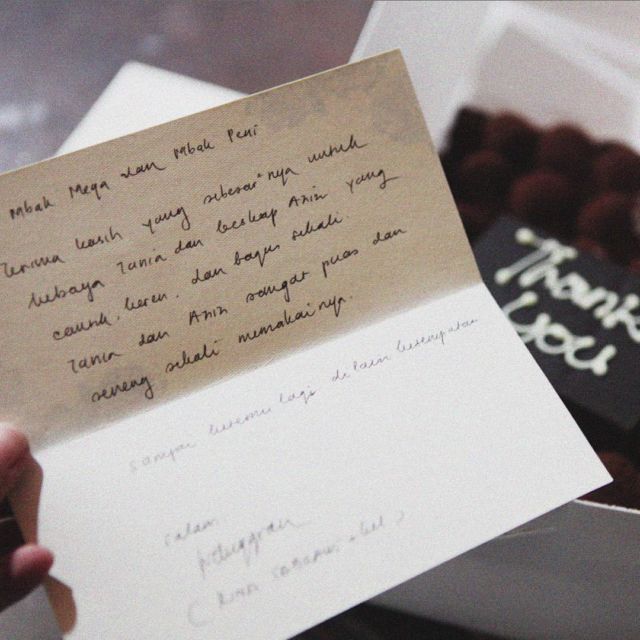 Mbak Mega dan Mbak Peni
Terima kasih yang sebesar²nya untuk
kebaya Tania dan beskap Anin yang
cantik, keren, dan bagus sekali.
Tania dan Anin sangat puas dan
seneng sekali memakainya.
sampai ketemu lagi di lain kesempatan
salam
Thank
you